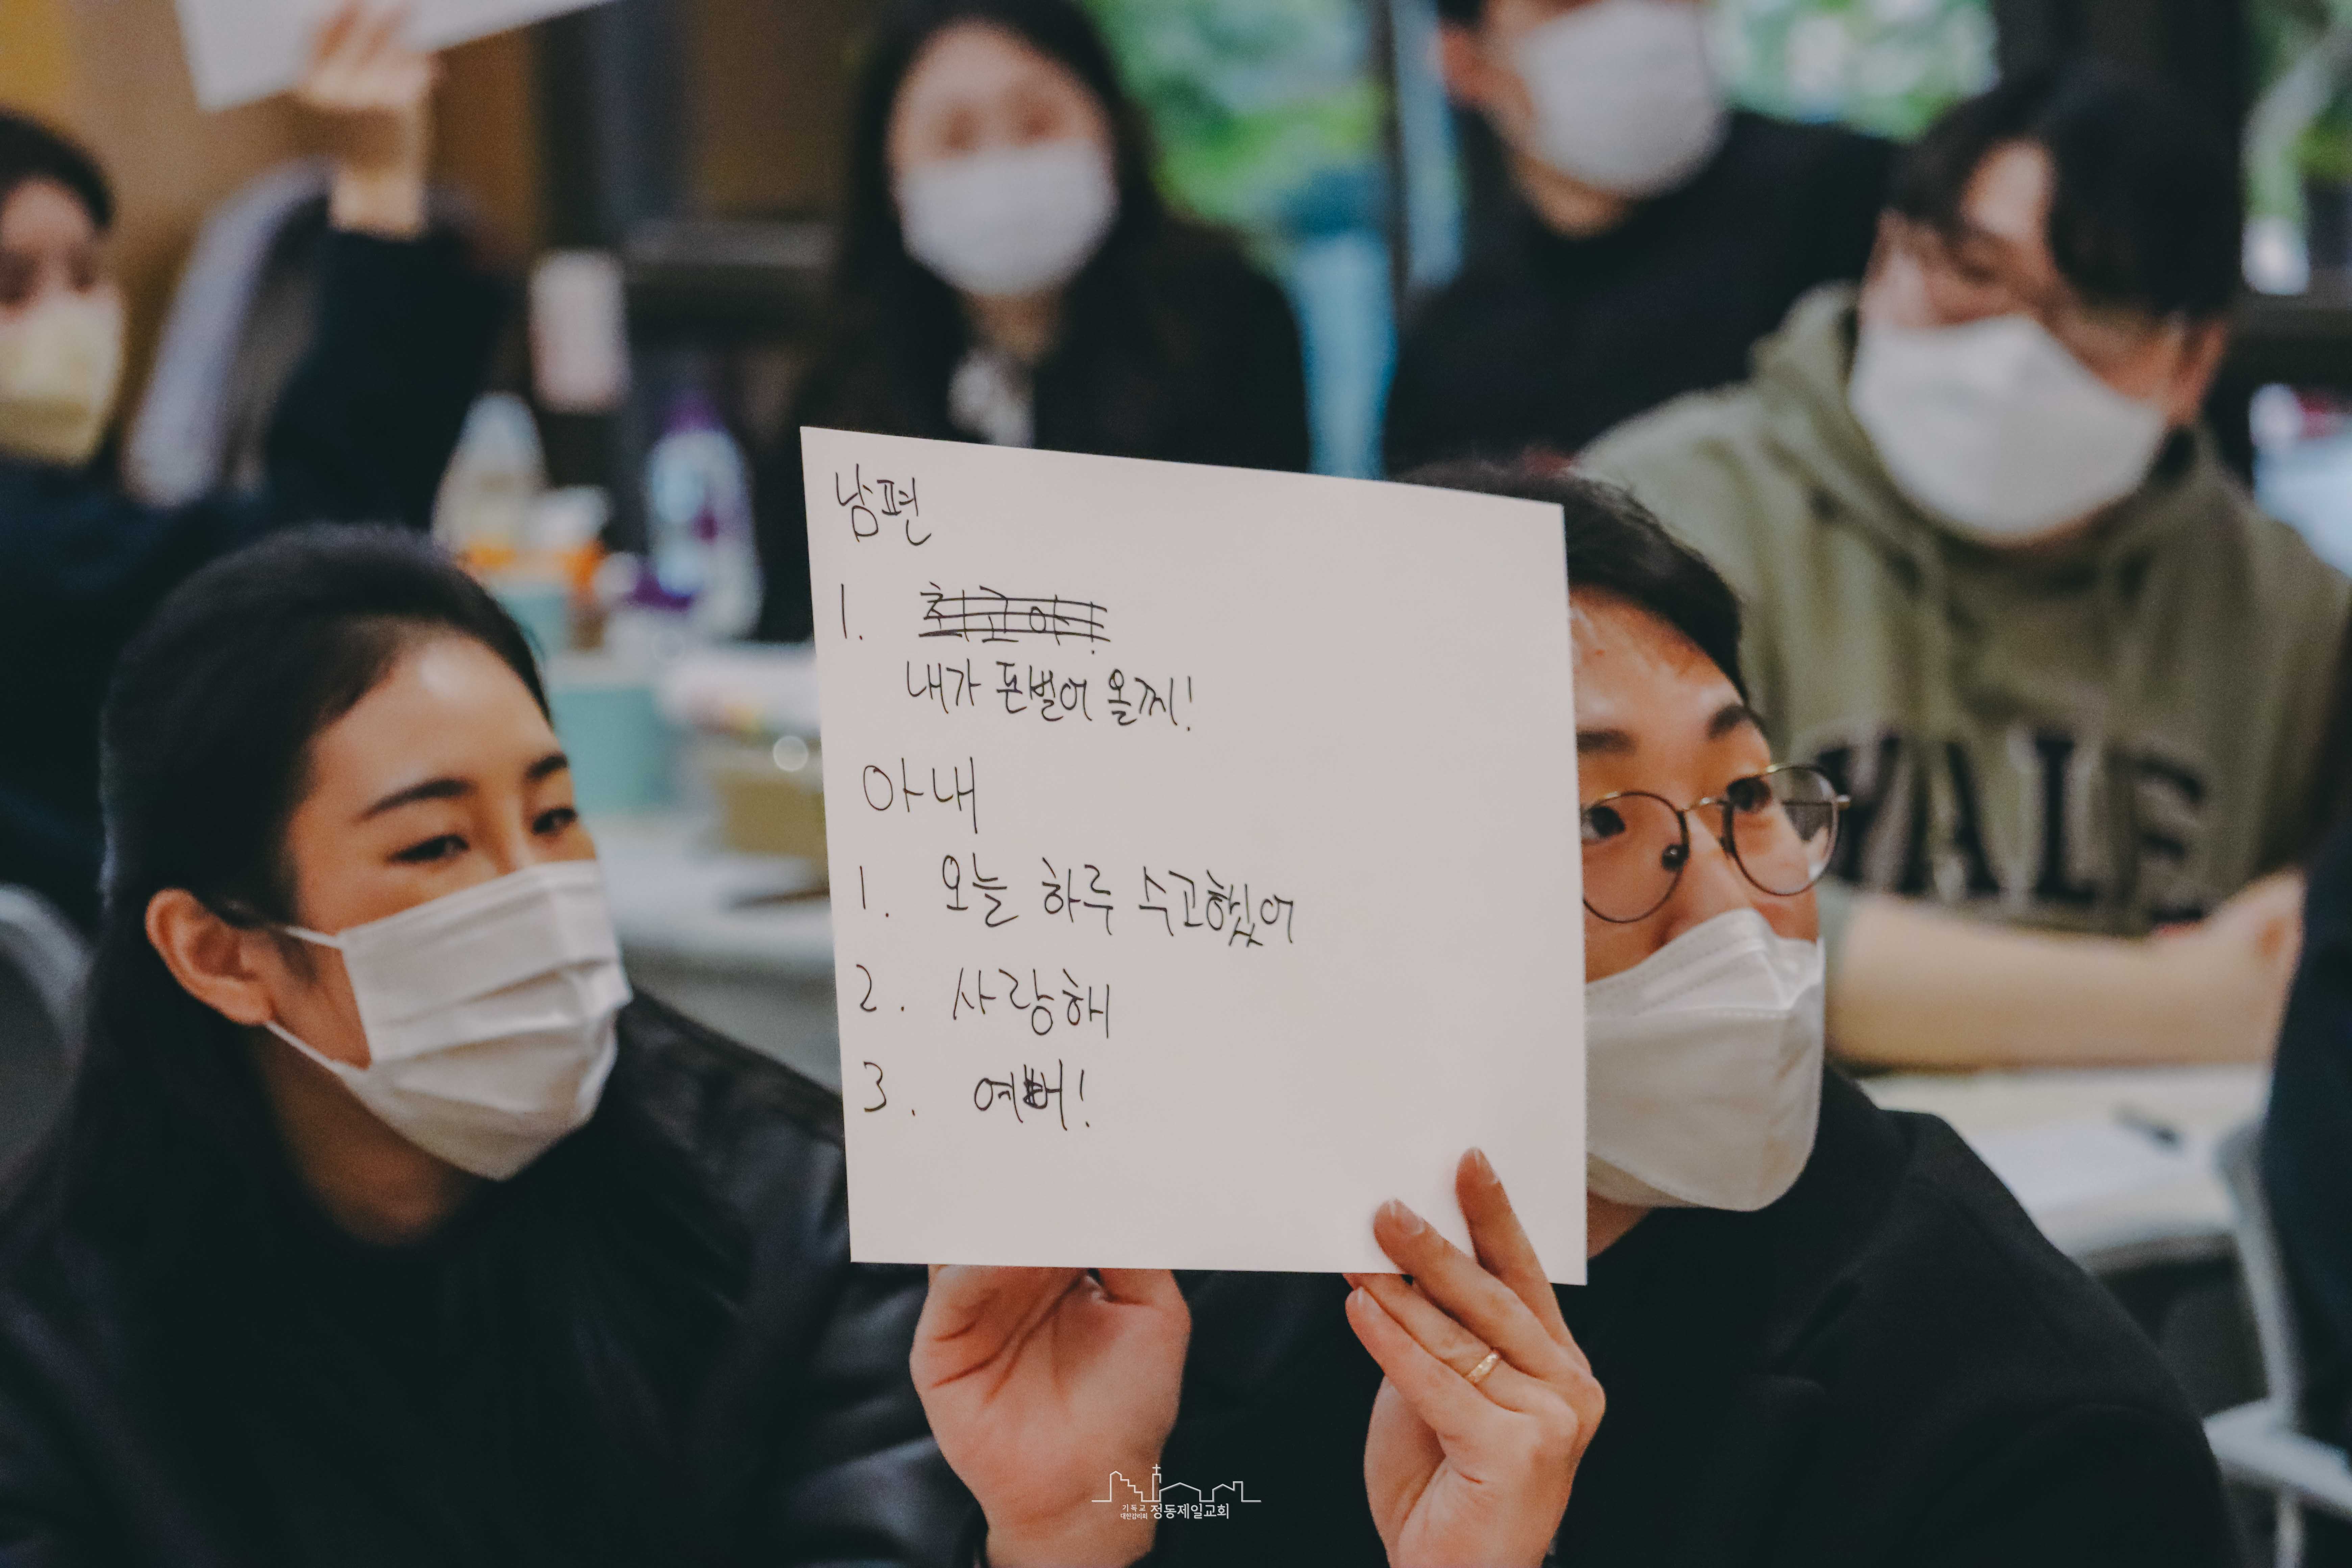 남편
1. 최고야!
내가 돈벌어 올찌!
아내
1. 오늘 하루 수고했어
2. 사랑해
3. 예뻐!
YALE
기독교
대한감리회 정동제일교회